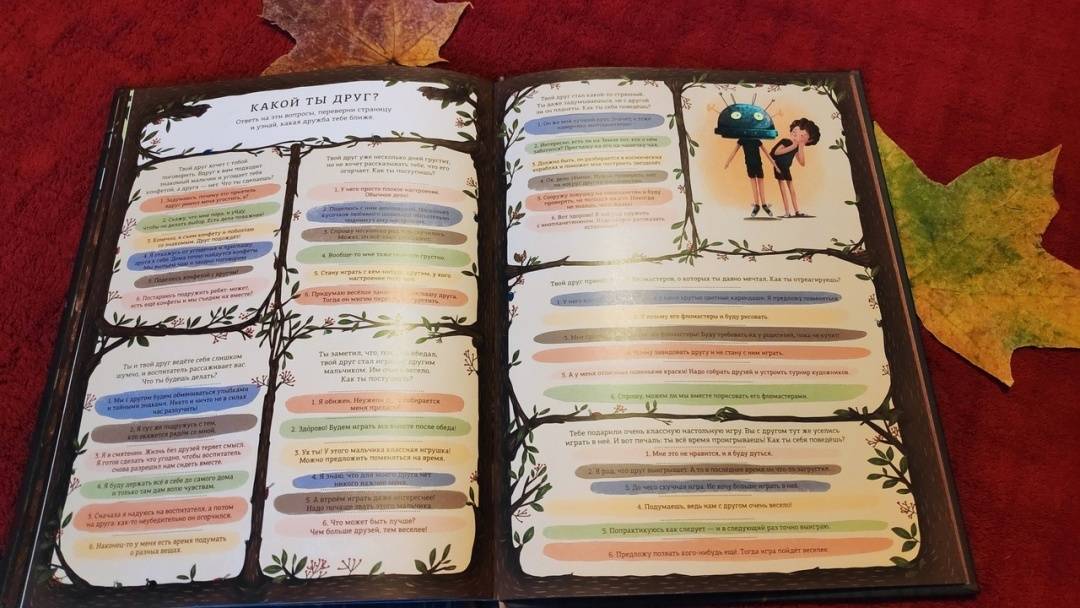 КАКОЙ ТЫ ДРУГ?
Ответь на эти вопросы, переверни страницу
и узнай, какая дружба тебе ближе.
Твой друг хочет с тобой
поговорить. Вдруг к вам подходит
знакомый мальчик и угощает тебя
конфетой, а друга — нет. Что ты сделаешь?
1. Задумаюсь: почему
вдруг решил меня угостить, а?
2. Скажу, что мне пора, и уйду,
чтобы не делать выбор. Есть дела поважнее!
3. Конечно, я съем конфету и поболтаю
со знакомым. Друг подождёт!
4. Я откажусь от угощения и приглашу
друга к себе. Дома точно найдутся конфеты.
Мы попьём чаю и заодно поговорим.
5. Поделюсь конфетой с другом!
6. Постараюсь подружить ребят: может,
есть ещё конфеты и мы съедим их вместе?
Твой друг уже несколько дней грустит,
но не хочет рассказывать тебе, что его
огорчает. Как ты поступишь?
1. У него просто плохое настроение.
Обычное дело!
2. Поделюсь с ним
кусочком любимого
3. Спрошу несколько раз, что случилось.
Может, он всё-таки
4. Вообще-то мне тоже грустно.
5. Стану играть с кем-нибудь другим, у кого
настроение получше.
6. Придумаю весёлое занятие и позову друга.
Тогда он мигом перестанет грустить.
Ты и твой друг ведёте себя слишком
шумно, и воспитатель рассаживает вас
Что ты будешь делать?
1. Мы с другом будем обмениваться улыбками
и тайными знаками. Никто и ничто не в силах
нас разлучить!
2. Я тут же подружусь с тем,
кто окажется рядом со мной.
3. Я в смятении. Жизнь без друзей теряет смысл.
Я готов сделать что угодно, чтобы воспитатель
снова разрешил нам сидеть вместе.
4. Я буду держать всё в себе до самого дома
и только там дам волю чувствам.
5. Сначала я надуюсь на воспитателя, а потом
на друга: как-то неубедительно он огорчился.
6. Наконец-то у меня есть время подумать
о разных вещах.
Ты заметил, что, пообедал,
твой друг стал играть с другим
мальчиком. Им очень весело.
Как ты поступишь?
1. Я обижен. Неужели он собирается
меня
2. Здорово! Будем играть все вместе после обеда!
3. Ух ты! У этого мальчика классная игрушка!
Можно предложить поменяться на время.
4. Я знаю, что для моего друга нет
никого важнее меня.
5. А втроём играть даже интереснее!
Надо почаще звать этого мальчика.
6. Что может быть лучше?
Чем больше друзей, тем веселее!
Твой друг стал какой-то странный.
Ты даже задумываешься, не с другой
ли он планеты. Как ты себя поведёшь?
1. Он же мой лучший друг. Значит, я тоже
наверняка инопланетянин!
2. Интересно, есть ли на Земле тот, кто о нём
заботится? Приглашу его на чашечку чая.
3. Должно быть, он разбирается в космических
кораблях и поможет мне построить звездолёт.
4. Ох, дело
5. Сооружу ловушку для инопланетян и буду
проверять, не попался ли он. Никогда
не знаешь,
6. Вот здорово! Я ещё не дружил
с инопланетянином. Надо скорее рассказать
Твой друг фломастеров, о которых ты давно мечтал. Как ты отреагируешь?
1. У него а у меня крутые цветные карандаши. Я предложу поменяться.
2. Возьму его фломастеры и буду рисовать.
3. фломастеры! Буду требовать их у родителей, пока не купят!
4. Стану завидовать другу и не стану с ним играть.
5. А у меня отличные новенькие краски! Надо собрать друзей и устроить турнир художников.
6. Спрошу, можем ли мы вместе порисовать его фломастерами.
Тебе подарили очень классную настольную игру. Вы с другом тут же уселись
играть в неё. И вот печаль: ты всё время проигрываешь! Как ты себя поведёшь?
1. Мне это не нравится, и я буду дуться.
2. Я рад, что друг выигрывает. А то в последнее время он что-то загрустил.
3. До чего скучная игра. Не хочу больше играть в неё.
4. Подумаешь, ведь нам с другом очень весело!
5. Попрактикуюсь как следует — и в следующий раз точно выиграю.
6. Предложу позвать кого-нибудь ещё. Тогда игра пойдёт веселее.